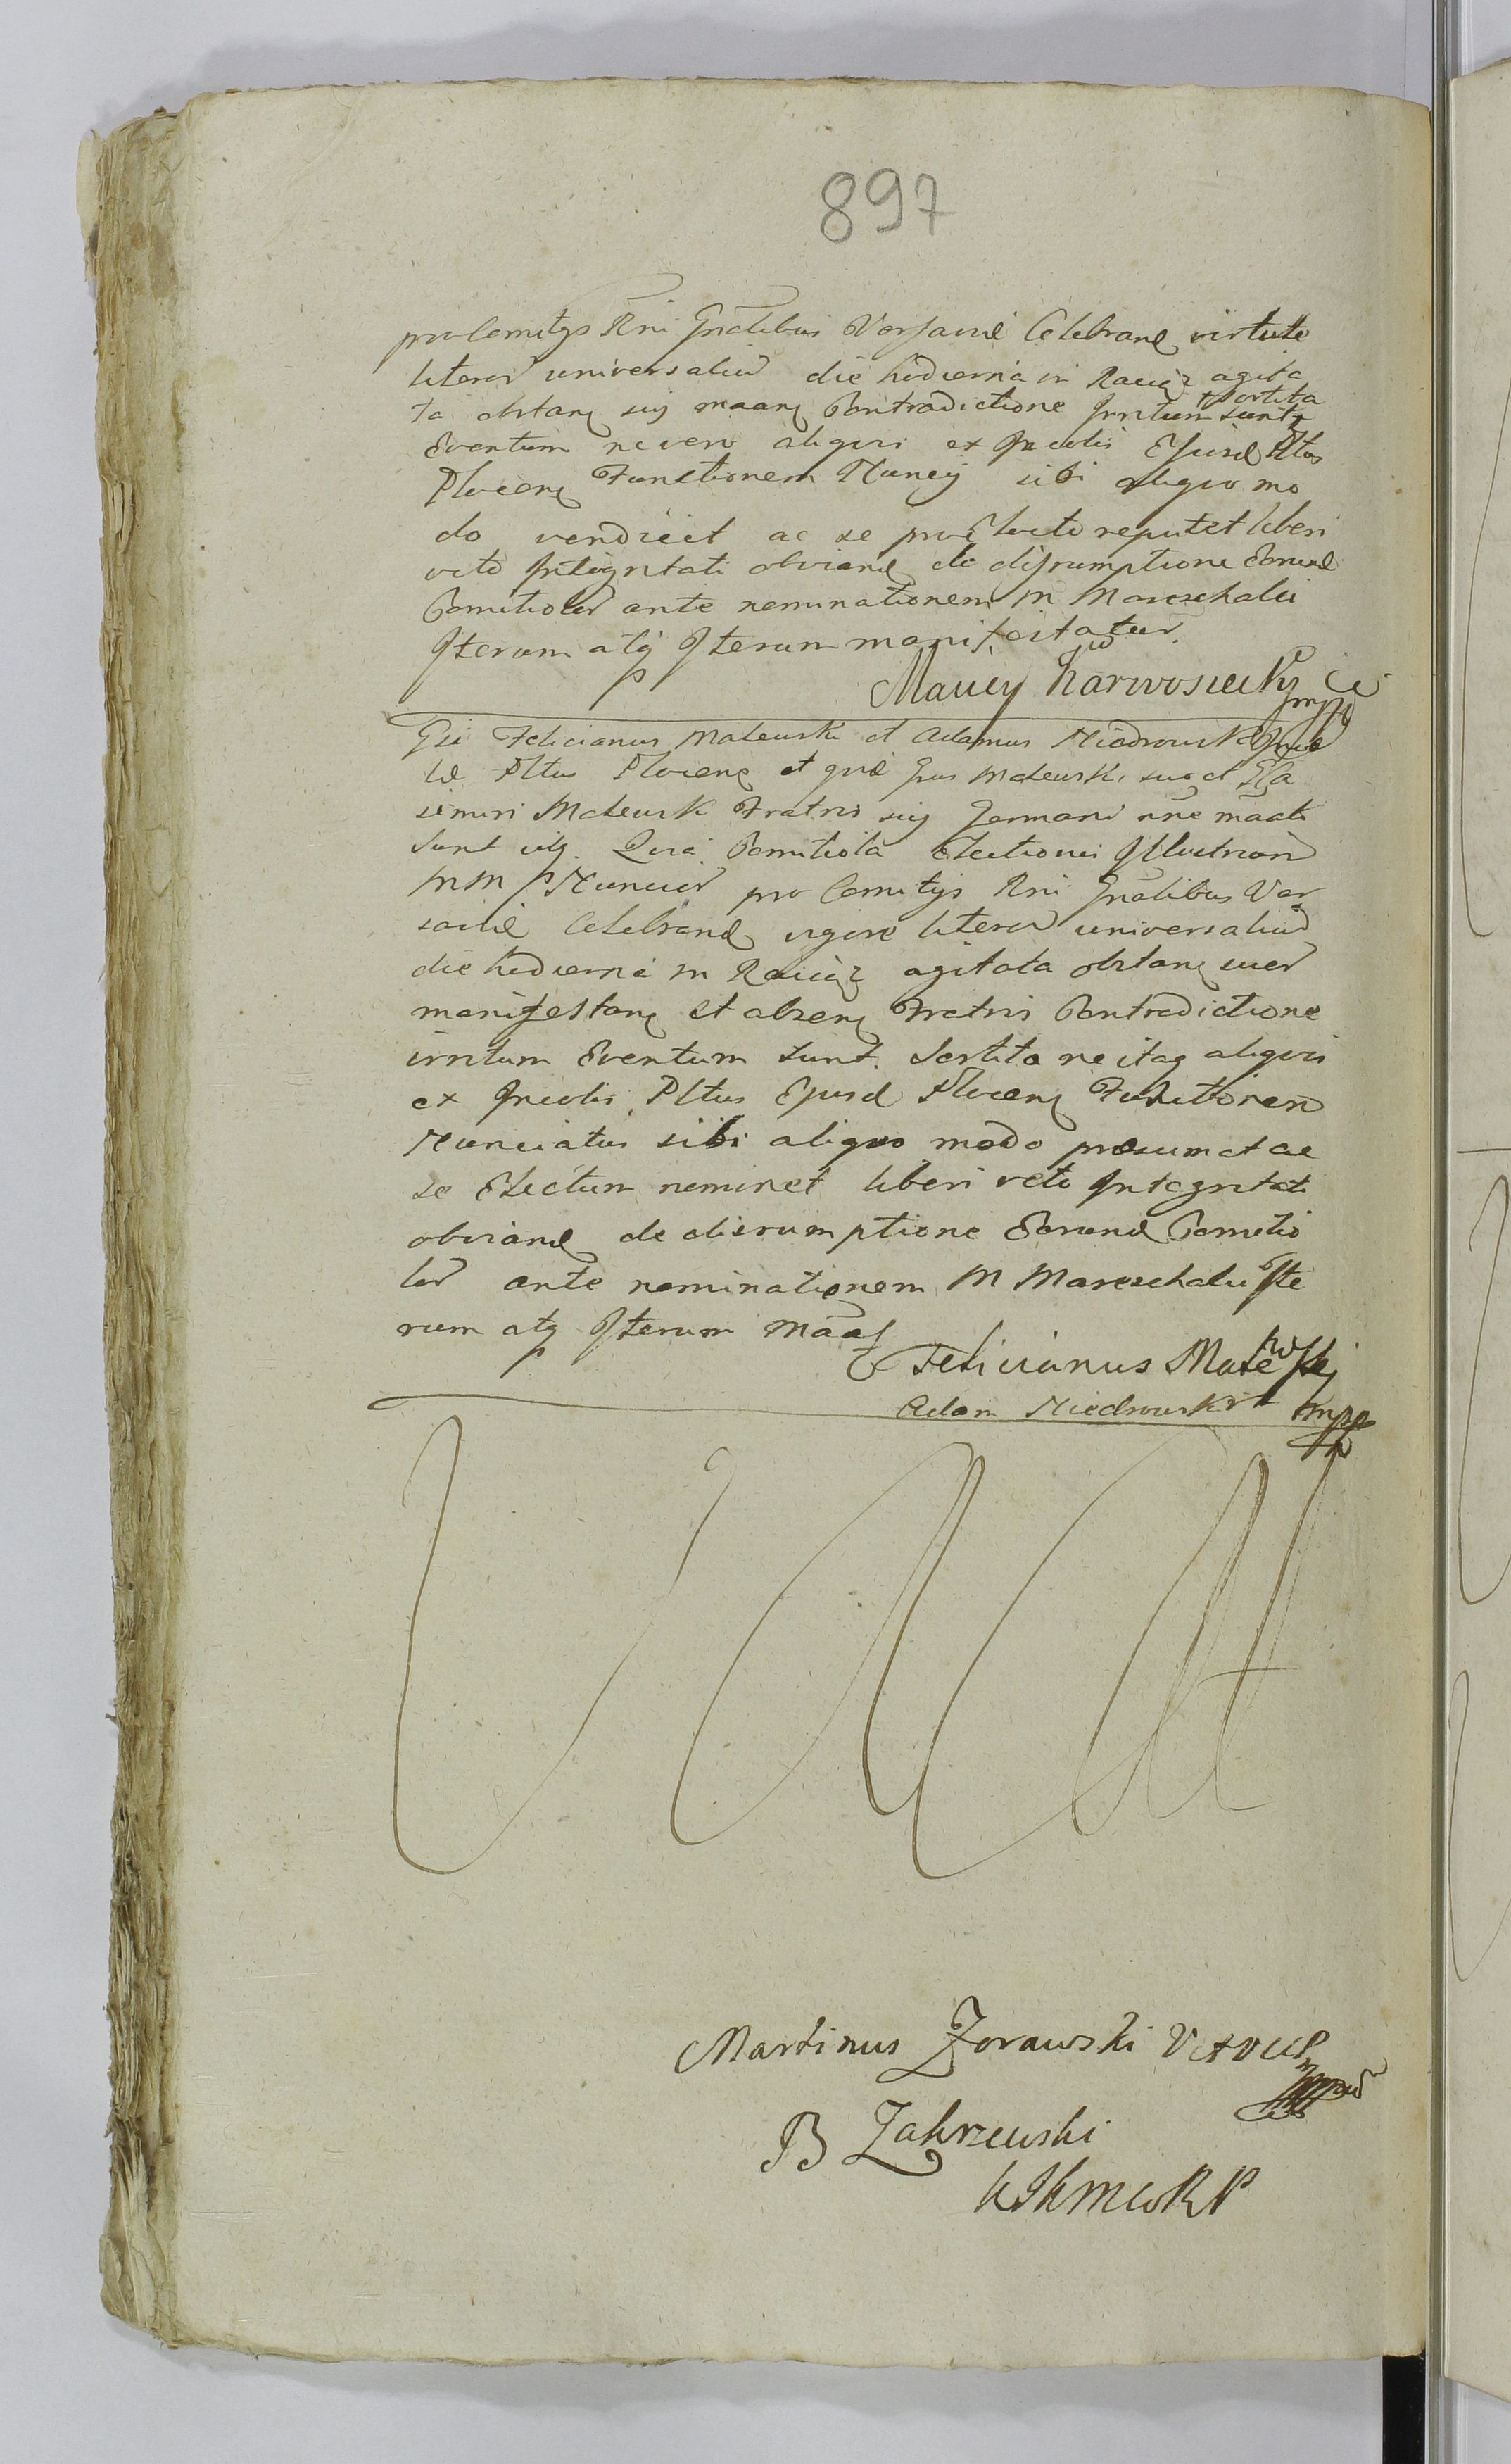 897
pro Comitys Rni Gnalibus Varsaviæ Celebrand virtute
literar universalium die hodierna in Raciąz agita
ta obstan sui maan Contradictione Irritum sortita sunt
Eventum ne vero aliquis ex Incolis Ejusd Pltus
Plocen Functionem Nuncij sibi aliquo mo
do vendicet ac se pro Electo reputet liberi
veto Integritati obviand de disrumptione Eorund
Comitiolor ante nominationem M Mareschalci
Iterum atq Iterum manifestatur.
Maciey Karwosiecki mpp
Gsi Felicianus Malewski et Adamus Niedrowski
Pltus Plocen et quid Gsus Malewski suo et Gsi Ca
simiri Malewski Fratris sui Germani nne maati
sunt itq. Quia Comitiola Electionis Illustrium
MM Nuncior pro Comitijs Rni Gnalibus Var
saviæ Celebrand vigore literar universalium
die hodierna in Raciąz agitata obstan suer
manifestan et absen Fratris Contradictione
irritum Eventum sunt sortita ne itaq aliquis
ex Incolis Pltus Ejusd Plocen Functionem
Nunciatus sibi aliquo modo præsumat ac
se Electum nominet liberi veto Integritati
obviand de disrumptione Eorund Comitio
lor ante nominationem M Mareschalci Ite
rum atq Iterum maat
Felicianus Malewski
Adam Niedrowski mpp
Martinus Zorawski
B Zakrzewski